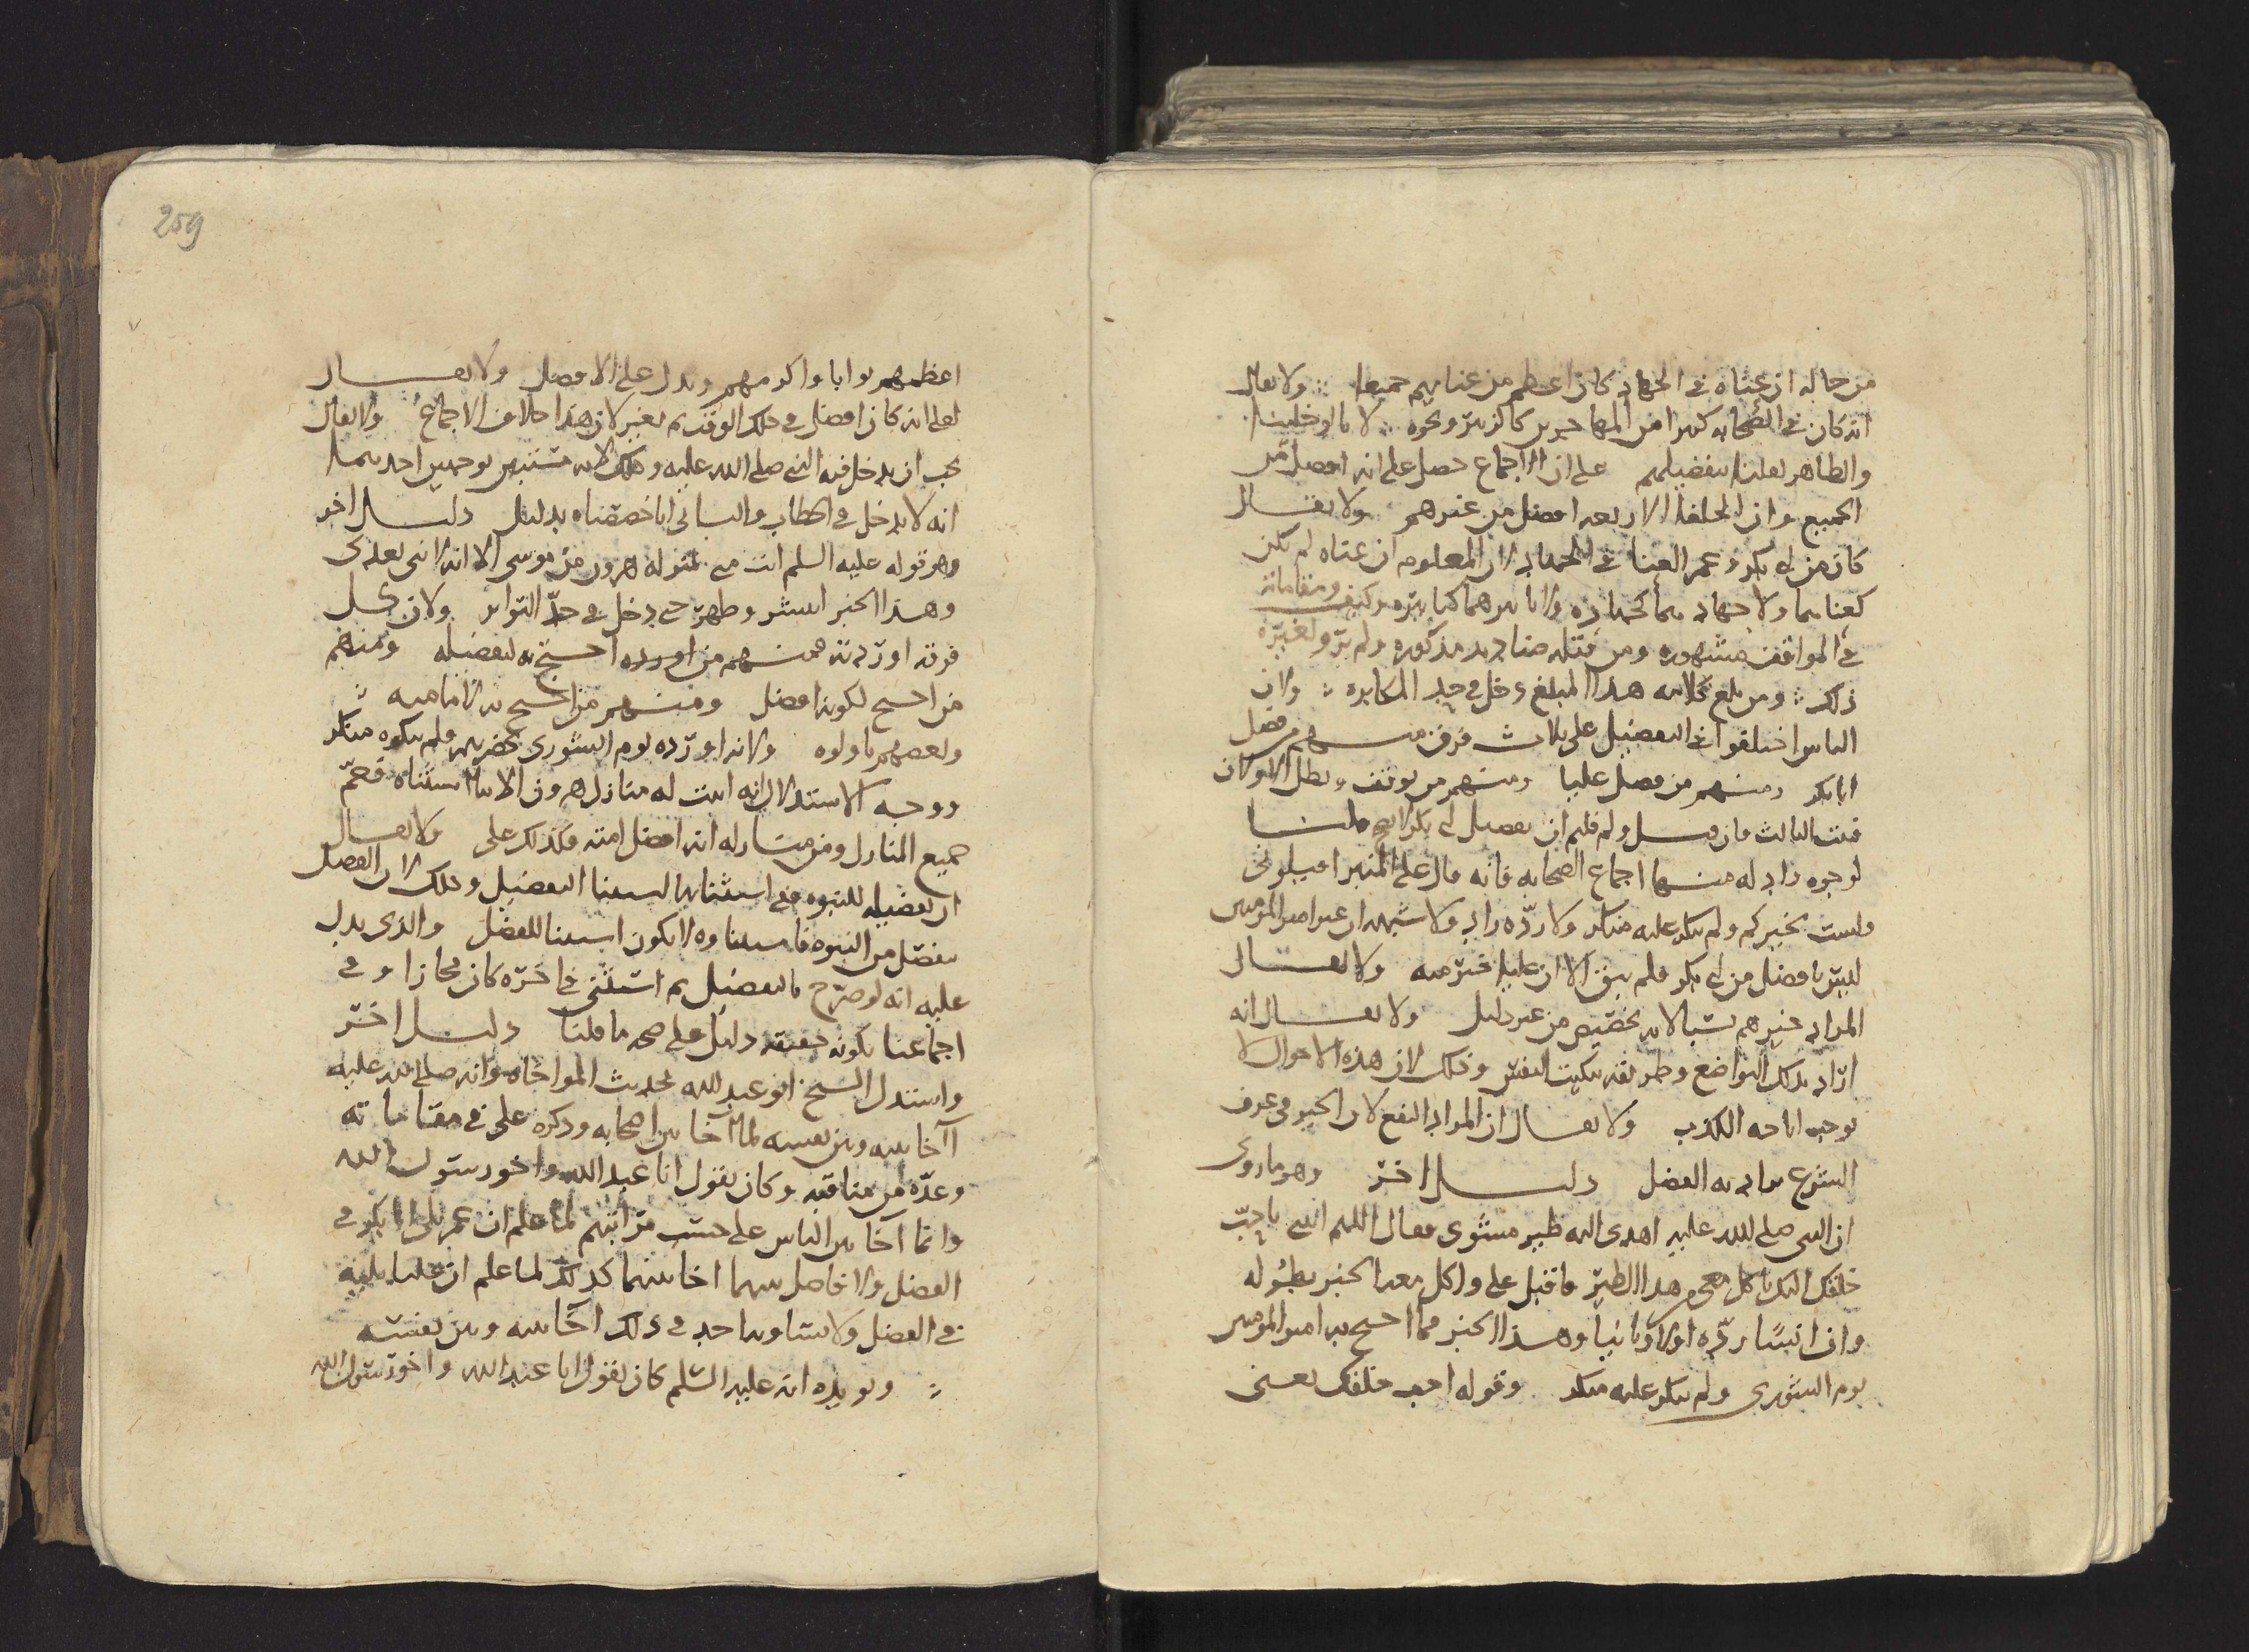 من حاله ان عناه في الجهاد كان اعظم من عنايهم جميعا ولا يقال
انه كان في الصحابه كثير من المهاجرين كالزبير ونحوه لانا
والظاهر تفضيلهم على ان الاجماع حصل على انه افضل من
الجميع وان الخلفا الاربعه افضل من غيرهم ولا يقال
كان من ابي بكر وعمر العنا في الجهاد لان المعلوم ان عناه لم يكن
كعنايهما ولا جهادهما كجهاده ومقاماته
في المواقف مشهوره ومن قتله مذكوره ولم
ذلك ومن بلغ كلامه هذا المبلغ دخل في حد المكابره ولان
الناس اختلفوا في التفضيل على ثلاث فرق منهم من فضل
ابا بكر ومنهم من فضل عليا ومنهم من توقف وبطل الاولان
فثبت الثالث فان قيل ولم قلتم ان تفضيل ابي بكر لا يصح قلنا
لوجوه داله منها اجماع الصحابه فانه قال على المنبر اقيلوني
ولست بخيركم ولم ينكر عليه منكر ولا رده راد ولا شبهه ان غير امير المومنين
ليس بافضل من ابي بكر فلم يبق الا ان عليا خير منه ولا يقال
المراد خيرهم نسبا لانه تخصيص من غير دليل ولا يقال انه
اراد بذلك التواضع وطريقه تنكيت النفس وذلك لان هذه الاحوال لا
توجب اباحه الكذب ولا يقال ان المراد النفع لان الخير في عرف
الشرع يراد به الفضل دليل اخر وهو ما روي
ان النبي صلى الله عليه اهدي اليه طير مشوي فقال اللهم ائتني باحب
خلقك اليك ياكل معي هذا الطير فاقبل علي واكل معه الخبر بطوله
وان انسا رده اولا وثانيا وهذا الخبر مما احتج به امير المومنين
يوم الشورى ولم ينكر عليه منكر وقوله احب خلقك يعني
259
اعظمهم ثوابا واكرمهم ويدل على الافضل ولا يقال
لعل انه كان افضل في ذلك الوقت ثم تغير لان هذا خلاف الاجماع ولا يقال
يجب ان يدخل فيه النبي صلى الله عليه وذلك لانه مستثنى بوجهين احدهما
انه لا يدخل في الخطاب والثاني انا خصصناه بدليل دليل اخر
وهو قوله عليه السلم انت مني بمنزله هرون من موسى الا انه لا نبي بعدي
وهذا الخبر انتشر وظهر حتى دخل في حد التواتر ولان كل
فرقه اوردته فمنهم من اورده احتج به لتفضيله ومنهم
من احتج لكونه افضل ومنهم من احتج به للامامه
وبعضهم تاولوه ولانه اورده يوم الشورى بحضرتهم ولم ينكره منكر
ووجه الاستدلال انه اثبت له منازل هرون الا ما استثناه فعم
جميع المنازل ومن منازله انه افضل امته فكذلك علي ولا يقال
ان تفضيله للنبوه ففي استثنايها استثنا التفضيل وذلك لان الفضل
ينفصل من النبوه فاستثناوه لا يكون استثنا للفضل والذي يدل
عليه انه لو صرح بالتفضيل ثم استثنى في اخره كان مجازا وفي
اجماعنا بكونه حقيقه دليل على صحه ما قلنا دليل اخر
واستدل الشيخ ابو عبد الله بحديث المواخاه وانه صلى الله عليه
آخا بينه وبين نفسه لما آخا بين اصحابه وذكره علي في مقاماته
وعده من مناقبه وكان يقول انا عبد الله واخو رسول الله
وانما آخا بين الناس على حسب مراتبهم لما علم ان عمر يلي ابا بكر في
الفضل ولا فاصل بينهما اخا بينهما كذلك لما علم ان عليا يليه
في الفضل ولا يساويه احد في ذلك آخا بينه وبين نفسه
ويويده انه عليه السلم كان يقول انا عبد الله واخو رسول الله